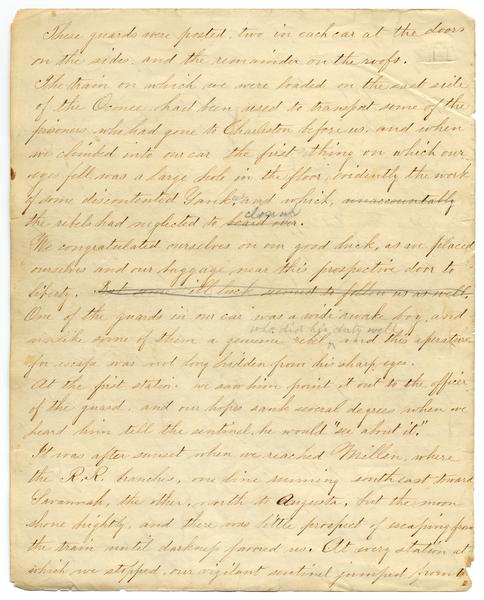 These guards were posted, two in each car at the doors
on the sides, and the remainder on the roofs.
The train on which we were loaded on the east side
of the Oconee had been used to transport some of the
prisoners who had gone to Charleston before us, and when
we climbed into our car the first thing on which our
eyes fell was a large hole in the floor, evidently the work
of some discontented Yank, and which, unaccountably
close up
the rebels had neglected to board over.
We congratulated ourselves on our good luck, as we placed
ourselves and our baggage near this prospective door to
liberty. But some ill luck seemed to follow us as well.
One of the guards in our car was a wide awake boy, and
who did his duty well
unlike some of them a genuine rebel, and this aperature
for escape was not long hidden from his sharp eyes.
At the first station we saw him point it out to the officer
of the guard, and our hopes sank several degrees when we
heard him tell the sentinel, he would "see about it".
It was after sunset when we reached Millen, where
the R.R. branches, one line running south east toward
Savannah, the other, north to Augusta, but the moon
shone brightly, and there was little prospect of escaping from
the train until darkness favored us. At every station at
which we stopped, our vigilant sentinel jumped from